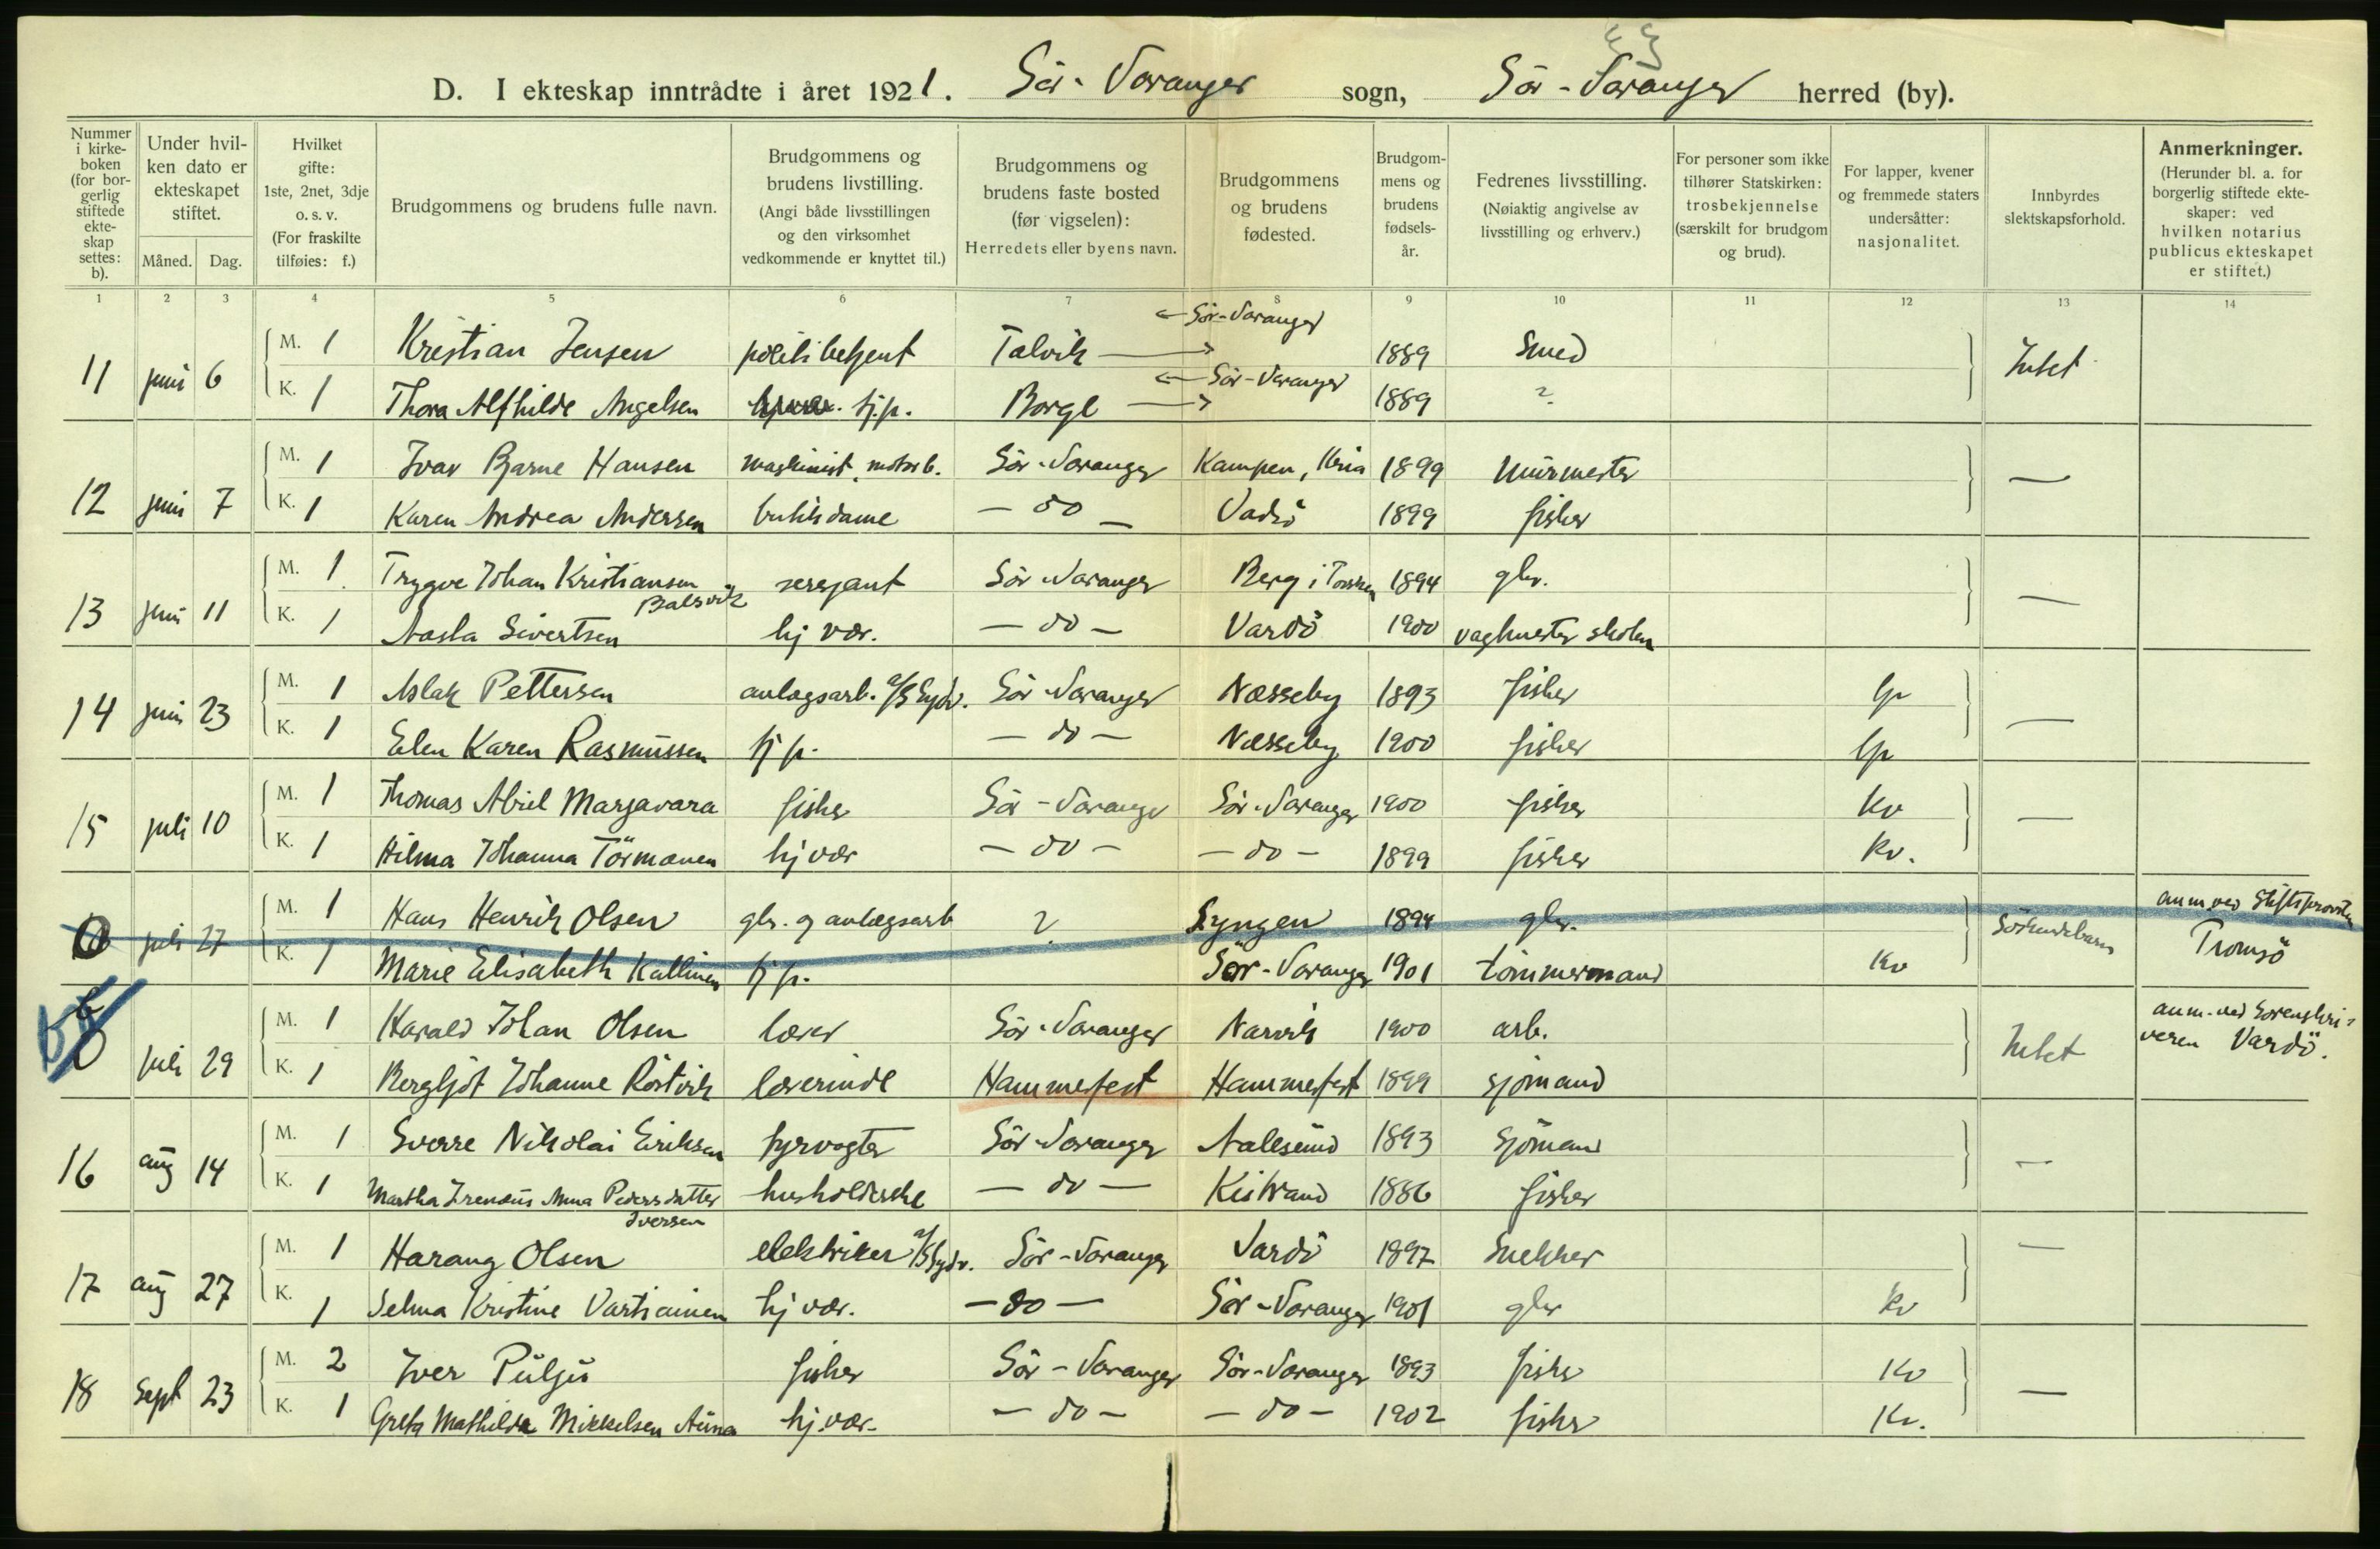 D. I ekteskap inntrådte i året 1921. Sör-Varanger sogn, Sör-Varanger herred (by).
Nummer i kirkeboken (for borgerlig stiftede ekteskap settes: b).
Under hvilken dato er ekteskapet stiftet.
Måned. Dag.
Hvilket gifte: 1ste, 2net, 3dje o. s. v. (For fraskilte tilføies: f.)
Brudgommens og brudens fulle navn.
Brudgommens og brudens livstilling. (Angi både livsstillingen og den virksomhet vedkommende er knyttet til.)
Brudgommens og brudens faste bosted (før vigselen): Herredets eller byens navn.
Brudgommens og brudens fødested.
Brudgommens og brudens fødselsår.
Fedrenes livsstilling. (Nøiaktig angivelse av livsstilling og erhverv.)
For personer som ikke tilhører Statskirken: trosbekjennelse (særskilt for brudgom og brud).
For lapper, kvener og fremmede staters undersåtter: nasjonalitet.
Innbyrdes slektskapsforhold.
Anmerkninger. (Herunder bl. a. for borgerlig stiftede ekteskaper: ved hvilken notarius publicus ekteskapet er stiftet.)
1 2 3 4 5 6 7 8 9 10 11 12 13 14
← Sör-Varanger
11 juni 6 M. 1 Kristian Jensen politibetjent Talvik → 1889 Smed Intet
← Sör-Varanger
K. 1 Thora Alfhilde Angelsen hj.p. Borge → 1889 ?
12 juni 7 M. 1 Ivar Bjarne Hansen maskinist, motorb. Sör-Varanger Kampen, Kria 1899 Murmester —
K. 1 Karen Andrea Andersen butikdame — do — Vadsö 1899 fisker
13 juni 11 M. 1 Trygve Johan Kristiansen Balsvik sersjant Sör-Varanger Berg i Torsken 1894 gbr. —
K. 1 Aasta Sivertsen hj vær. — do — Vardö 1900 vagtmester skolen
14 juni 23 M. 1 Aslak Pettersen anlægsarb. a/s Sydv. Sör-Varanger Næsseby 1893 fisker lp —
K. 1 Elen Karen Rasmussen hj p. — do — Næsseby 1900 fisker lp
15 juli 10 M. 1 Thomas Abiel Margavara fisker Sör-Varanger Sör-Varanger 1900 fisker kv —
K. 1 Hilma Johanna Törmænen hj vær — do — — do — 1899 fisker kv.
juli 27 M. 1 Hans Henrik Olsen gbr. og anlægsarb ? Lyngen 1894 gbr. Söskendebarn anm. ved Stiftsprovsten Tromsö
K. 1 Marie Elisabeth Kallinen hj p. Sör-Varanger 1901 tömmermand kv
b juli 29 M. 1 Harald Johan Olsen lærer Sör-Varanger Narvik 1900 arb. Intet anm. ved Sorenskriveren Vardö.
K. 1 Bergljot Johanne Röstvik lærerinde Hammerfest Hammerfest 1899 sjömand
16 aug 14 M. 1 Sverre Nikolai Eriksen fyrvogter Sör-Varanger Aalesund 1893 Sjömand —
K. 1 Martha Irenæus Anna Pedersdatter Iversen husholderske — do — Kistrand 1886 fisker
17 aug 27 M. 1 Harang Olsen elektriker a/s Sydv. Sör-Varanger Vardö 1897 Snekker —
K. 1 Selma Kristine Vartiainen hj vær. — do — Sör-Varanger 1901 gbr kv
18 Sept 23 M. 2 Iver Pulju fisker Sör-Varanger Sör-Varanger 1893 fisker kv —
K. 1 Greta Mathilda Mikkelsen Auna hj.vær. — do — — do — 1902 fisker kv.